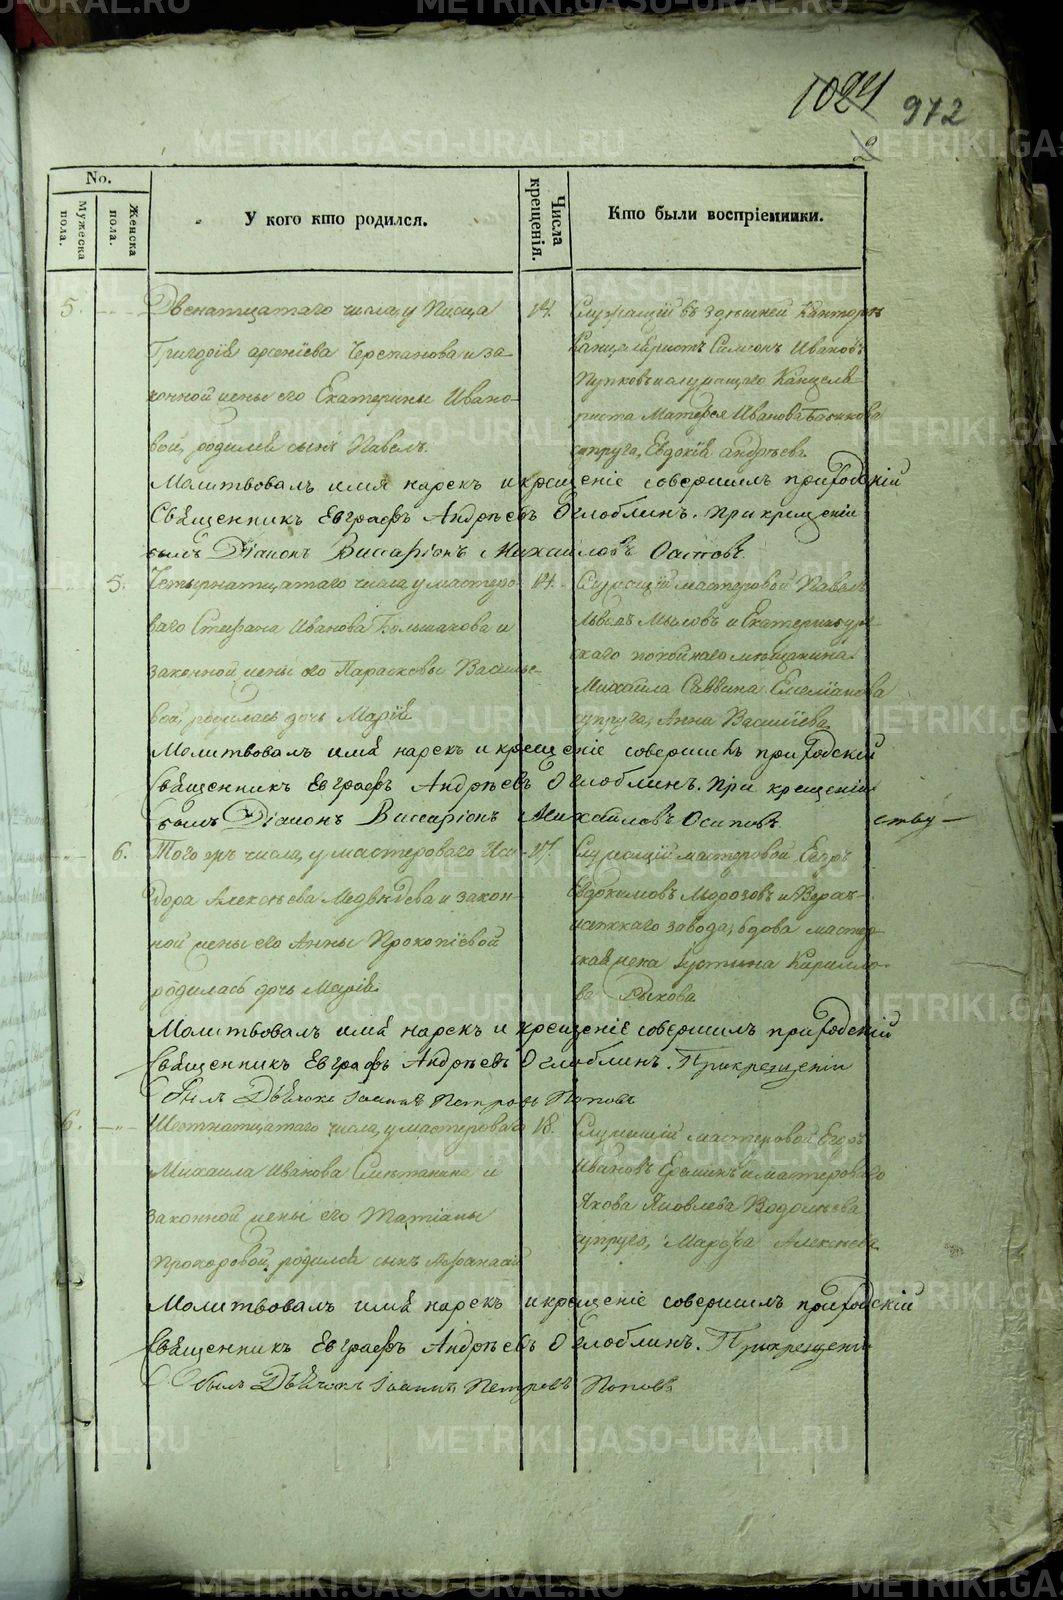 1024 972
2
No.
Мужеска пола.
Женска пола.
У кого кто родился.
Числа крещенія.
Кто были воспріемники.
5. Двенатцатаго числа, у Писца
Григорія арсеніева Черепанова и за-
конной жены его Екатерины Ивано-
вой, родился сынъ Павелъ.
14.
Служащій въ здешней Канторѣ
Канцеляристъ Самсонъ Ивановъ
Пупковъ и служащаго Канцеля-
риста Матфея Иванова
супруга, Евдокія андрѣева
Молитвовалъ имя нарекъ и крещеніе совершилъ приходскій
Священникъ Евграфъ Андрѣевъ Оглоблинъ. При крещеніи
былъ Діаконъ Виссаріонъ Михайловъ Осиповъ.
5. Четырнатцатаго числа, у мастеро-
ваго Стефана Иванова Большакова и
законной жены его Парасковьи Василье-
вой родилась дочь Марія
14.
Служащій мастеровой Павелъ
Львовъ Мыловъ и Екатеринбург-
скаго покойнаго мещанина
Михайла Саввина Емеліянова
супруга, Анна Василіева
Молитвовалъ имя нарекъ и крещеніе совершилъ приходскій
Священникъ Евграфъ Андрѣевъ Оглоблинъ. При крещеніи
былъ Діаконъ Виссаріонъ Михайловъ Осиповъ.
ству
6. Того жъ числа, у мастероваго Иси-
дора Алексѣева Медвѣдева и закон-
ной жены его Анны Прокопіевой
родилась дочь Марія
17.
Служащій мастеровой Егоръ
Евдокимовъ Морозовъ и Верхъ-
исетскаго завода, вдова мастер-
ская жена Іустина Кирилло-
ва Рыкова
Молитвовалъ имя нарекъ и крещеніе совершилъ приходскій
Священникъ Евграфъ Андрѣевъ Оглоблинъ. При крещеніи
былъ Дьячокъ Іоаннъ Петровъ Поповъ
6. Шестнатцатаго числа, у мастероваго
Михаила Иванова Сметанина и
законной жены его Татіаны
Прохоровой, родился сынъ Афанасій
18.
Служащій мастеровой Егоръ
Ивановъ Ерошинъ и мастероваго
Якова Яковлева Водолѣева
супруга, Марфа Алексѣева
Молитвовалъ имя нарекъ и крещеніе совершилъ приходскій
Священникъ Евграфъ Андрѣевъ Оглоблинъ. При крещеніи
былъ Дьячокъ Іоаннъ Петровъ Поповъ
METRIKI.GASO-URAL.RU